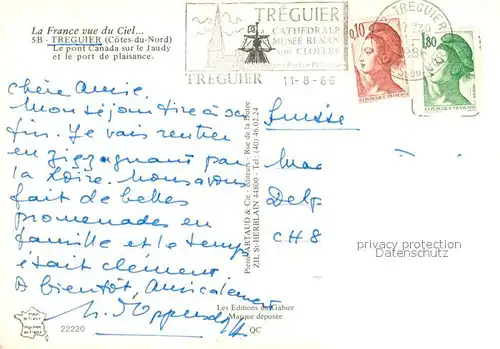 La France vue du Ciel...
SB - TREGUIER (Côtes-du-Nord)
Le pont Canada sur le Jaudy
et le port de plaisance.
TRÉGUIER
CATHÉDRALE
MUSÉE RENAN
CLOITRE
TREGUIER
11-8-86
TREGUIER
0,10
RÉPUBLIQUE FRANÇAISE
1,80
RÉPUBLIQUE FRANÇAISE
Chère Amie,
Mon séjour tire à sa
fin. Je vais rentrer
en zigzagnant par
la Loire. Nous avons
fait de belles
promenades en
famille et le temps
était clément
A bientôt, Amicalement
Suisse
CH 8
Pierre ARTAUD & Cie - éditeurs - Rue de la
ZIL St-HERBLAIN 44800 - Tel: (40) 46.02.24
privacy protection
privacy protection
Les Editions du Gabier
Marque déposée
22220
QC